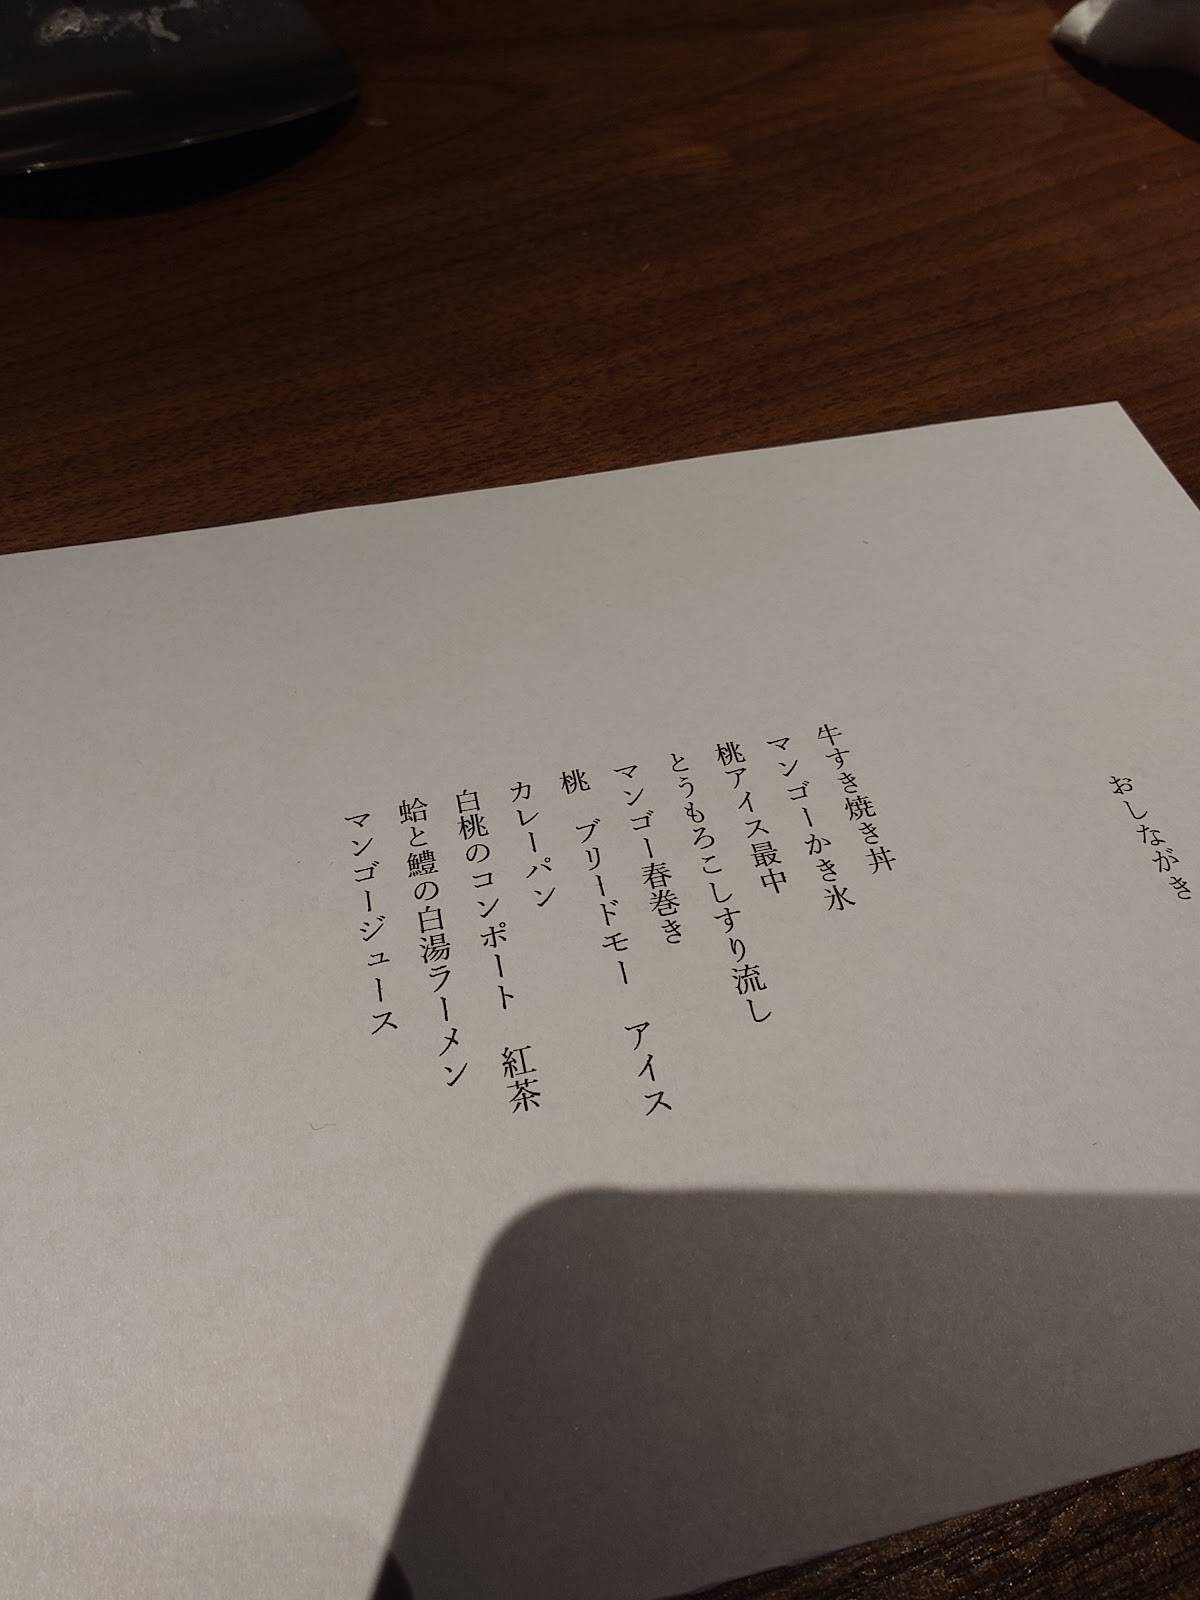 おしながき
牛すき焼き丼
マンゴーかき氷
桃アイス最中
とうもろこしすり流し
マンゴー春巻き
桃　ブリードモー　アイス
カレーパン
白桃のコンポート　紅茶
蛤と鱧の白湯ラーメン
マンゴージュース